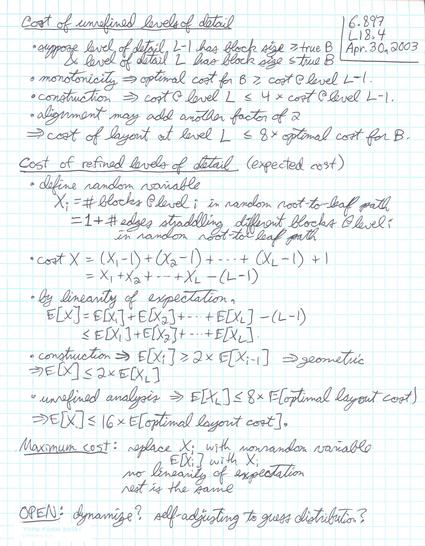 Cost of unrefined levels of detail
6.897
L18.4
Apr. 30, 2003
• suppose level of detail L-1 has block size ≥ true B
& level of detail L has block size ≤ true B
• monotonicity ⇒ optimal cost for B ≥ cost @ level L-1.
• construction ⇒ cost @ level L ≤ 4 × cost @ level L-1.
• alignment may add another factor of 2
⇒ cost of layout at level L ≤ 8 × optimal cost for B.
Cost of refined levels of detail (expected cost)
• define random variable
Xi = # blocks @ level i in random root-to-leaf path
= 1 + # edges straddling different blocks @ level i
in random root-to-leaf path
• cost X = (X1-1) + (X2-1) + ... + (XL-1) + 1
= X1 + X2 + ... + XL - (L-1)
• by linearity of expectation,
E[X] = E[X1] + E[X2] + ... + E[XL] - (L-1)
≤ E[X1] + E[X2] + ... + E[XL].
• construction ⇒ E[Xi] ≥ 2 × E[Xi-1] ⇒ geometric
⇒ E[X] ≤ 2 × E[XL]
• unrefined analysis ⇒ E[XL] ≤ 8 × E[optimal layout cost]
⇒ E[X] ≤ 16 × E[optimal layout cost].
Maximum cost: replace Xi with nonrandom variable
E[Xi] with Xi
no linearity of expectation
rest is the same
OPEN: dynamize? self-adjusting to guess distribution?